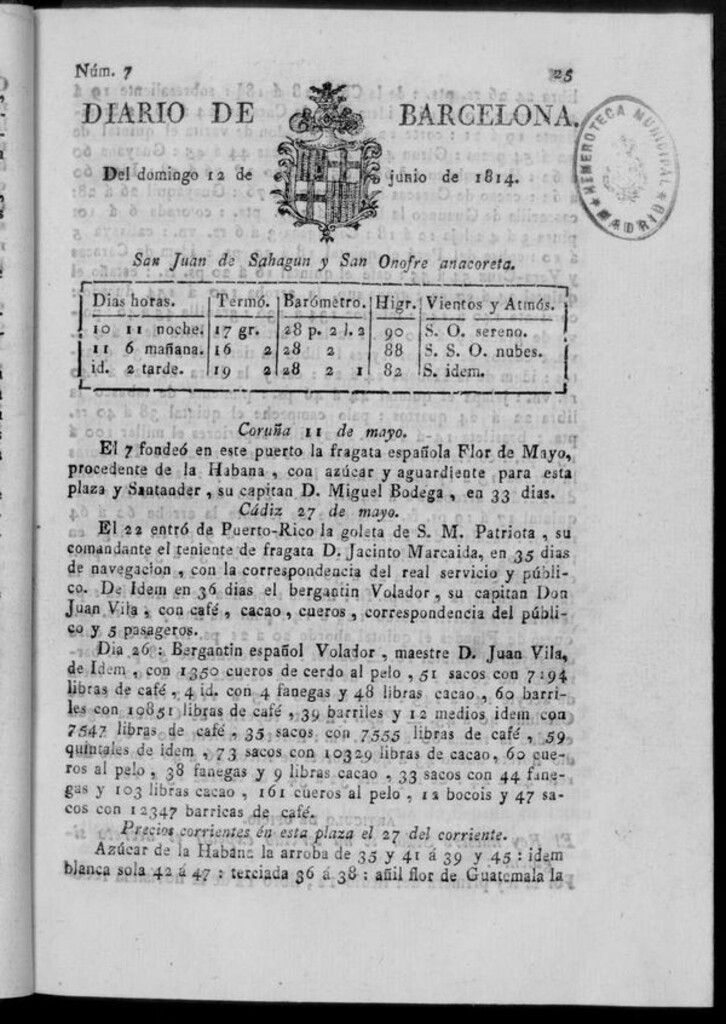 Núm. 7 25
DIARIO DE BARCELONA.
Del domingo 12 de junio de 1814.
HEMEROTECA MUNICIPAL
MADRID
San Juan de Sahagun y San Onofre anacoreta.
Dias horas. Termó. Barómetro. Higr. Vientos y Atmós.
10 11 noche. 17 gr. 28 p. 2 l. 2 90 S. O. sereno.
11 6 mañana. 16 2 28 2 88 S. S. O. nubes.
id. 2 tarde. 19 2 28 2 1 82 S. idem.
Coruña 11 de mayo.
El 7 fondeó en este puerto la fragata española Flor de Mayo,
procedente de la Habana , con azúcar y aguardiente para esta
plaza y Santander , su capitan D. Miguel Bodega , en 33 dias.
Cádiz 27 de mayo.
El 22 entró de Puerto-Rico la goleta de S. M. Patriota , su
comandante el teniente de fragata D. Jacinto Marcaida, en 35 dias
de navegacion , con la correspondencia del real servicio y públi-
co. De Idem en 36 dias el bergantin Volador , su capitan Don
Juan Vila , con café , cacao , cueros , correspondencia del públi-
co y 5 pasageros.
Dia 26 : Bergantin español Volador , maestre D. Juan Vila,
de Idem , con 1350 cueros de cerdo al pelo , 51 sacos con 7294
libras de café , 4 id. con 4 fanegas y 48 libras cacao , 60 barri-
les con 10851 libras de café , 39 barriles y 12 medios idem con
7547 libras de café , 35 sacos con 7555 libras de café , 59
quintales de idem , 73 sacos con 10329 libras de cacao, 60 cue-
ros al pelo , 38 fanegas y 9 libras cacao , 33 sacos con 44 fane-
gas y 103 libras cacao , 161 cueros al pelo , 12 bocois y 47 sa-
cos con 12347 barricas de café.
Precios corrientes en esta plaza el 27 del corriente.
Azúcar de la Habana la arroba de 35 y 41 á 39 y 45 : idem
blanca sola 42 á 47 : terciada 36 á 38 : añil flor de Guatemala la